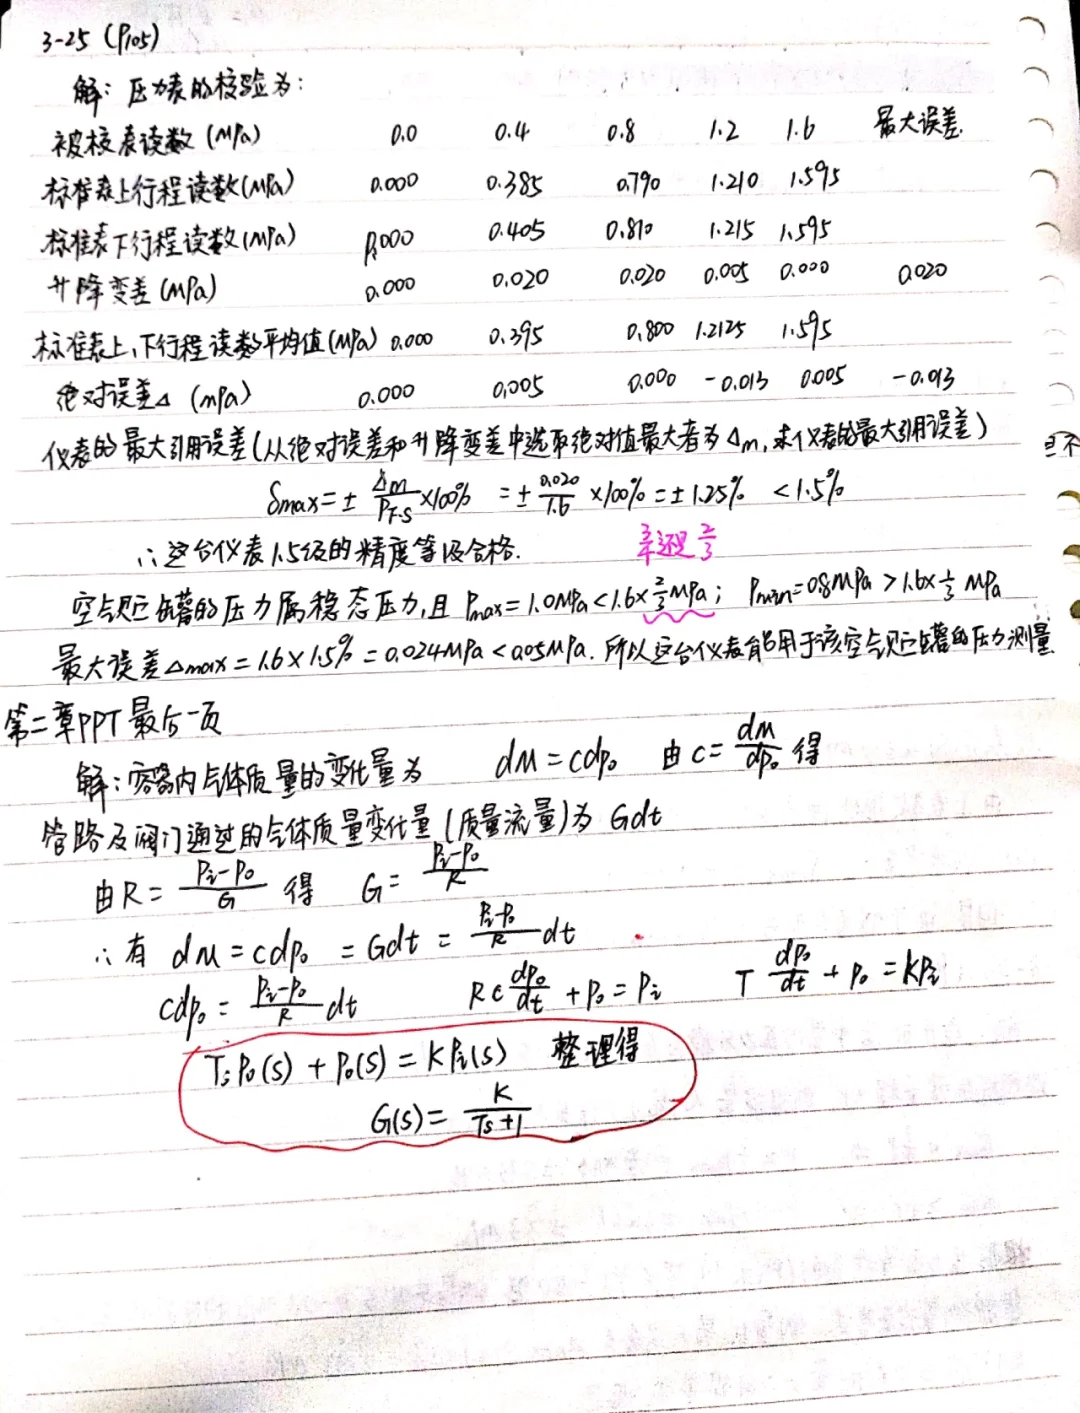 3-25 (P105)
解：压力表的校验为：
被校表读数 (MPa) 0.0 0.4 0.8 1.2 1.6 最大误差
标准表上行程读数(MPa) 0.000 0.385 0.790 1.210 1.595
标准表下行程读数(MPa) 0.000 0.405 0.810 1.215 1.595
升降变差 (MPa) 0.000 0.020 0.020 0.005 0.000 0.020
标准表上、下行程读数平均值(MPa) 0.000 0.395 0.800 1.2125 1.595
绝对误差Δ (mPa) 0.000 0.005 0.000 -0.013 0.005 -0.013
仪表的最大引用误差(从绝对误差和升降变差中选取绝对值最大者为Δm,求仪表的最大引用误差)
δmax=± Δm/PF·S ×100% =± 0.020/1.6 ×100% =±1.25% <1.5%
∴这台仪表1.5级的精度等级合格.
还是 2/3
空气贮罐的压力属稳态压力,且 Pmax=1.0MPa<1.6×2/3MPa； Pmin=0.8MPa>1.6×1/3 MPa
最大误差Δmax=1.6×1.5%=0.024MPa<0.05MPa. 所以这台仪表能用于该空气贮罐的压力测量
第二章PPT最后一页
解：容器内气体质量的变化量为 dM=cdp₀ 由c=dM/dp₀ 得
管路及阀门通过的气体质量变化量(质量流量)为 Gdt
由R= Pi-P0/G 得 G= Pi-P0/R
∴有 dM=cdp₀ =Gdt= Pi-P0/R dt
cdp₀= Pi-P0/R dt RC dp₀/dt +P₀=Pi T dp₀/dt +P₀=KPi
TsP₀(s)+P₀(s)=KPi(s) 整理得
G(s)= K/Ts+1